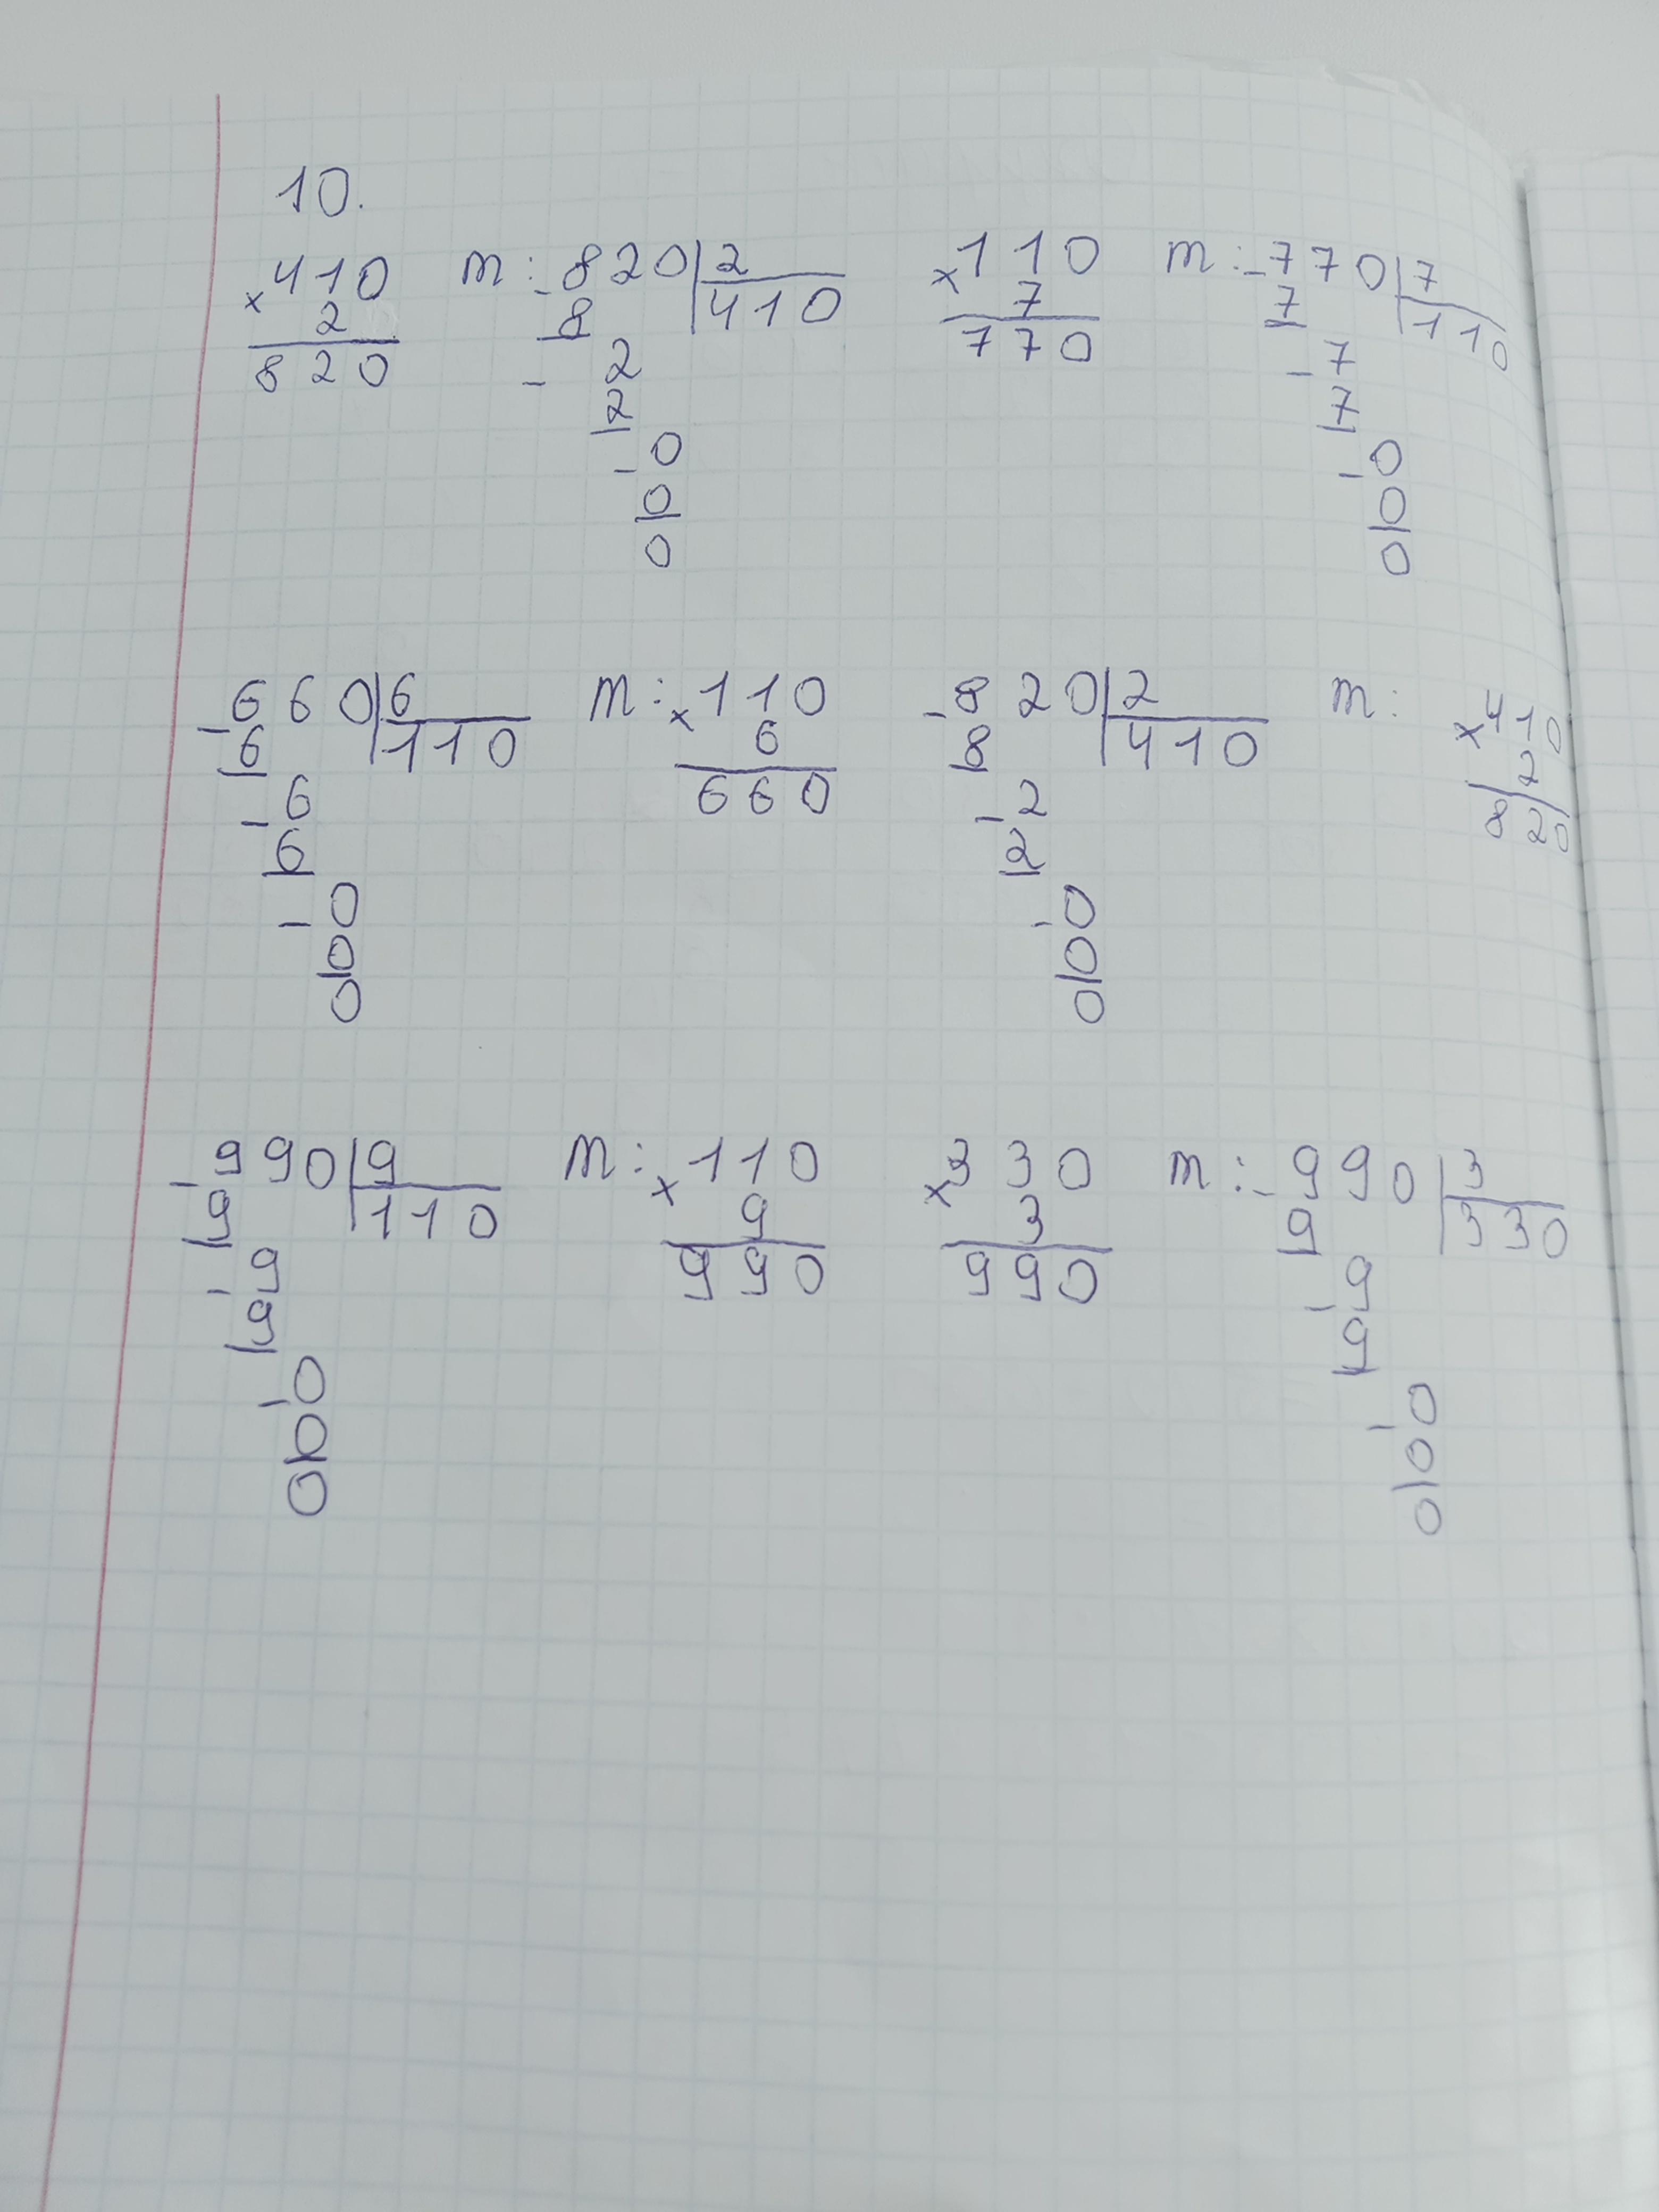 10.
×410 m: -820|2 ×110 m: -770|7
2 8 410 7 7 110
820 -2 770 -7
2 7
-0 -0
0 0
0 0
-660|6 m: ×110 -820|2 m: ×410
6 110 6 8 410 2
-6 660 -2 820
6 2
-0 -0
0 0
0 0
-990|9 m: ×110 ×330 m: -990|3
9 110 9 3 9 330
-9 990 990 -9
9 9
-0 -0
0 0
0 0